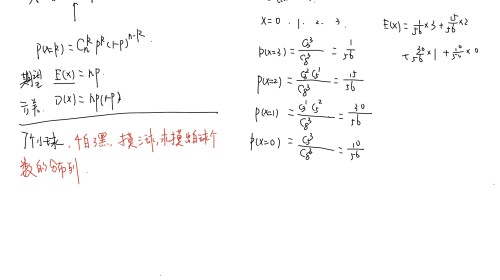 P(x=k) = C_n^k p^k (1-p)^{n-k}.
期望 E(x) = np.
方差. D(x) = np(1-p)
7个小球, 4白3黑, 摸三球, 求摸出白球个
数的分布列.
x=0. 1. 2. 3.
P(x=3) = C_3^3 / C_8^3 = 1/56
P(x=2) = C_3^2 C_5^1 / C_8^3 = 15/56
P(x=1) = C_3^1 C_5^2 / C_8^3 = 30/56
P(x=0) = C_5^3 / C_8^3 = 10/56
E(x) = 1/56 × 3 + 15/56 × 2
+ 30/56 × 1 + 10/56 × 0